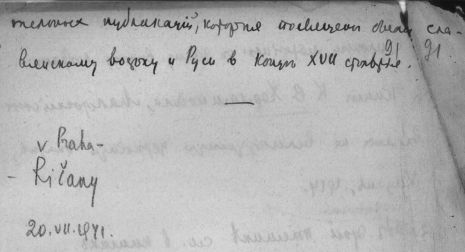 публикаций, которые посвящены были сла-
вянскому вопросу и Руси в конце XVII столетия. 91.
v Praha-
- Říčany
20.VII.1971.